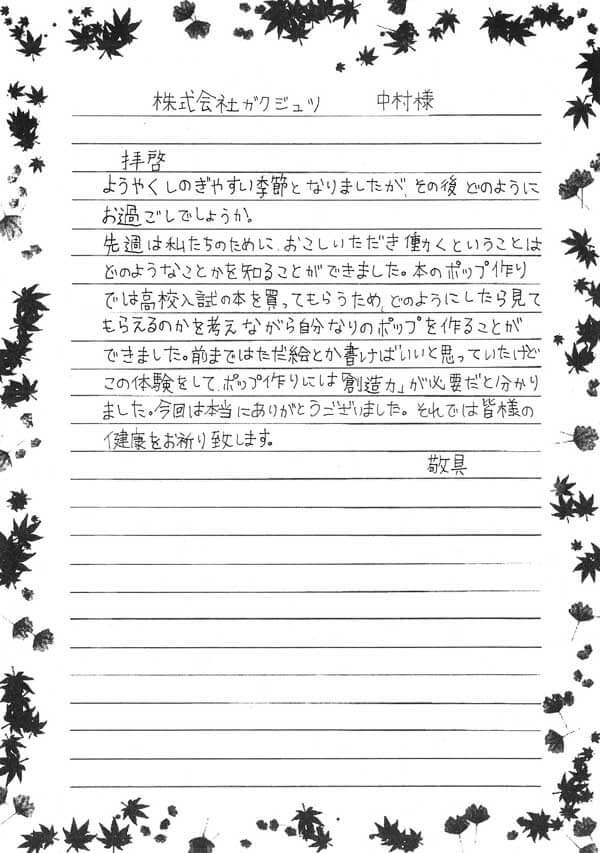 株式会社ガクジュツ　　中村様
拝啓
ようやくしのぎやすい季節となりましたが、その後どのように
お過ごしでしょうか。
先週は私たちのために、おこしいただき働くということは
どのようなことかを知ることができました。本のポップ作り
では高校入試の本を買ってもらうため、どのようにしたら見て
もらえるのかを考えながら自分なりのポップを作ることが
できました。前まではただ絵とか書けばいいと思っていたけど
この体験をして、ポップ作りには「創造力」が必要だと分かり
ました。今回は本当にありがとうございました。それでは皆様の
健康をお祈り致します。
敬具